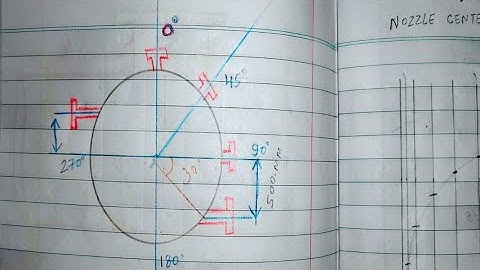 0°
45°
270°
90°
30°
500MM
180°
NOZZLE CENTE